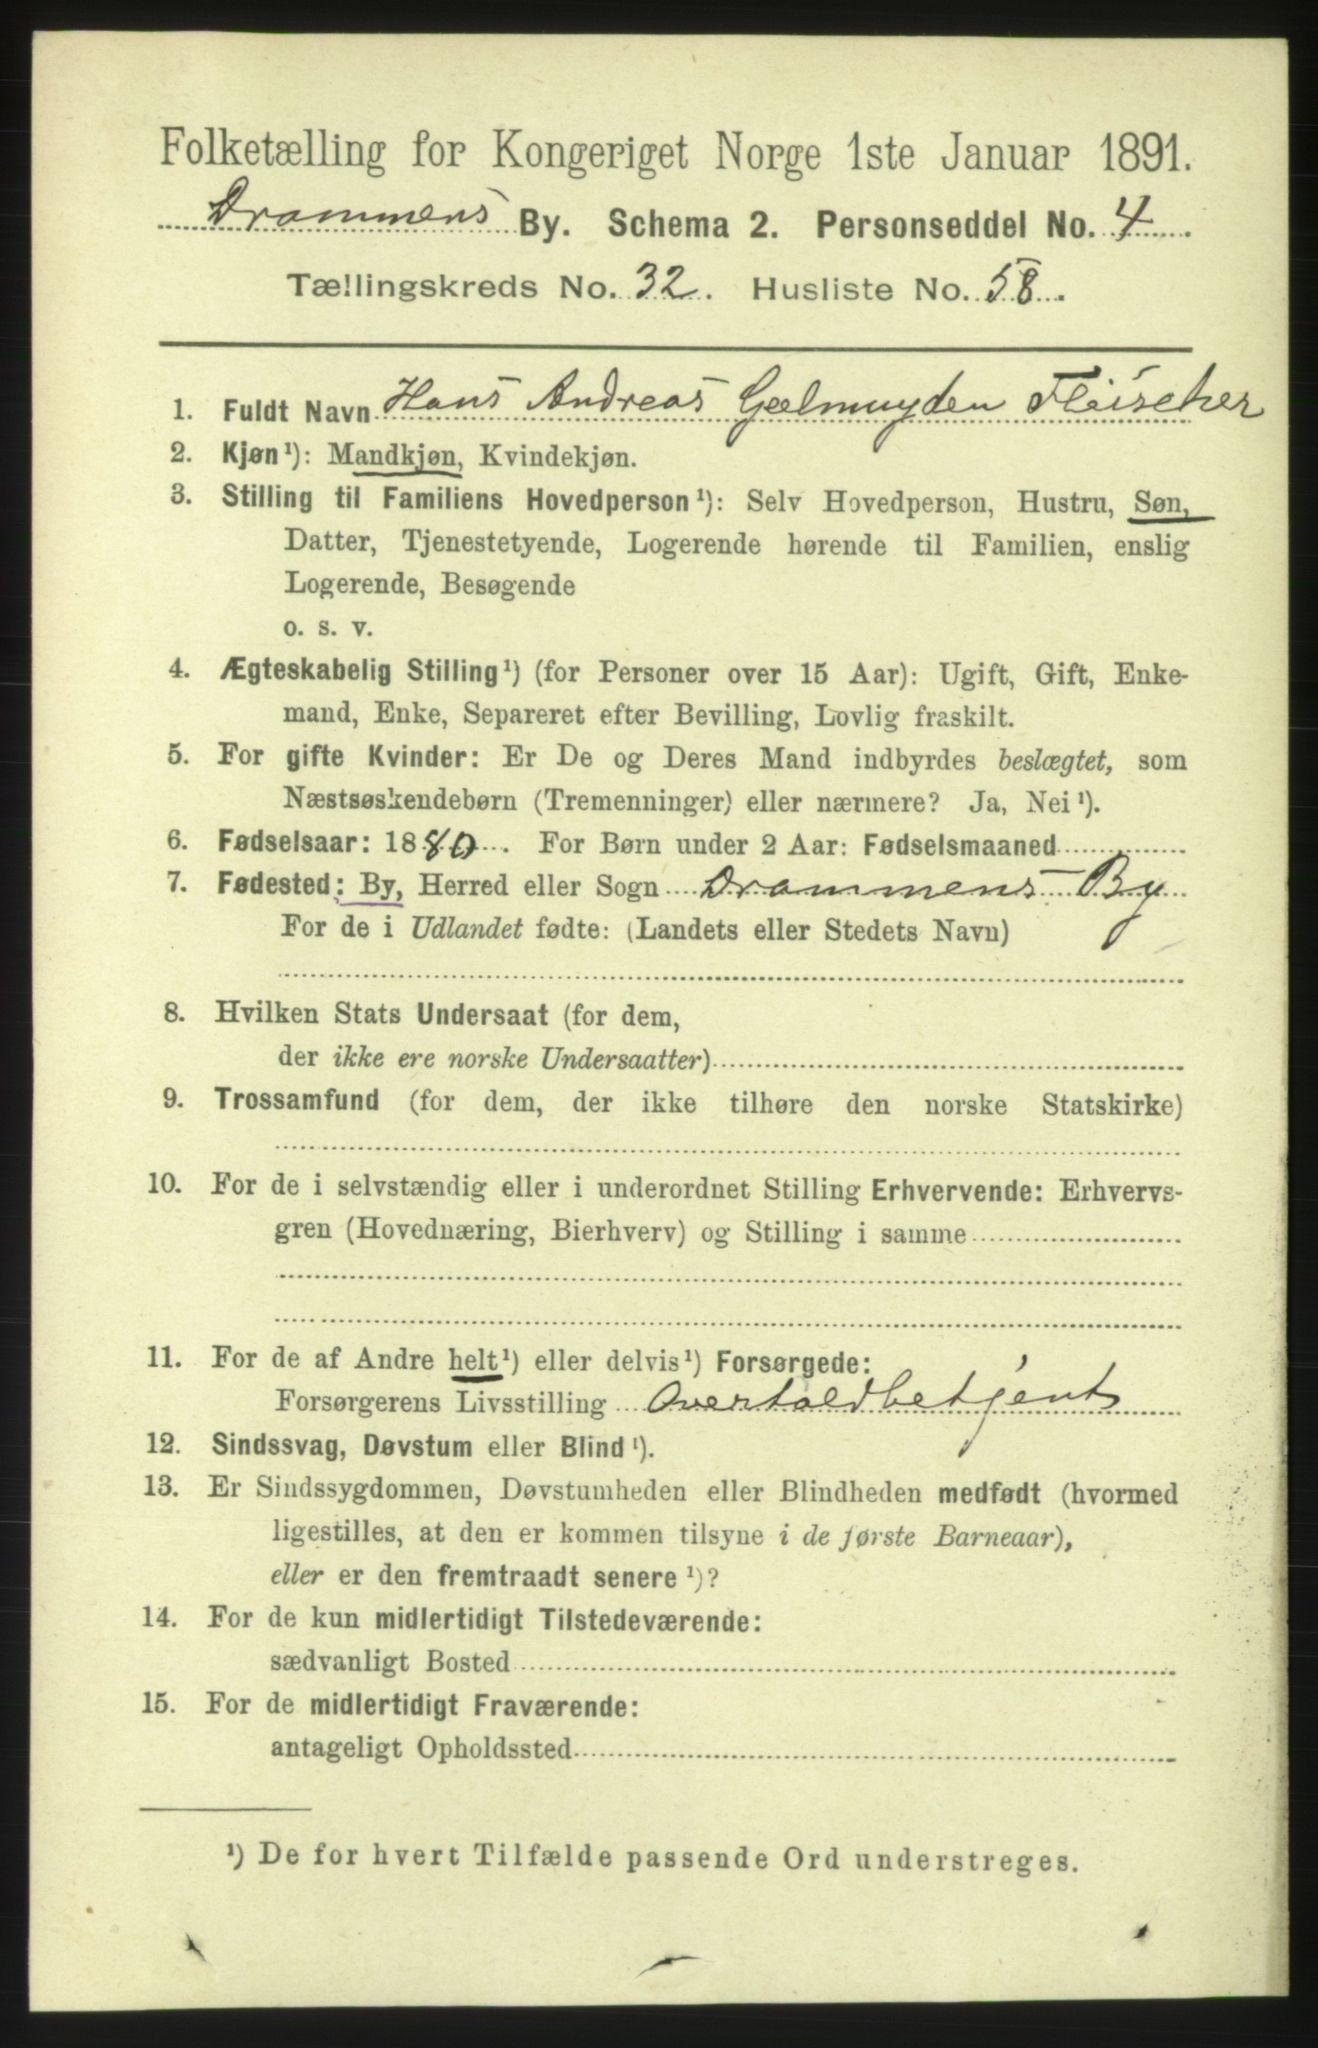 Folketælling for Kongeriget Norge 1ste Januar 1891.
Drammens By. Schema 2. Personseddel No. 4
Tællingskreds No. 32. Husliste No. 58.
1. Fuldt Navn Hans Andreas Gelmuyden Fleischer
2. Kjøn¹): Mandkjøn, Kvindekjøn.
3. Stilling til Familiens Hovedperson¹): Selv Hovedperson, Hustru, Søn,
Datter, Tjenestetyende, Logerende hørende til Familien, enslig
Logerende, Besøgende
o. s. v.
4. Ægteskabelig Stilling¹) (for Personer over 15 Aar): Ugift, Gift, Enke-
mand, Enke, Separeret efter Bevilling, Lovlig fraskilt.
5. For gifte Kvinder: Er De og Deres Mand indbyrdes beslægtet, som
Næstsøskendebørn (Tremenninger) eller nærmere? Ja, Nei¹).
6. Fødselsaar: 1880. For Børn under 2 Aar: Fødselsmaaned
7. Fødested: By, Herred eller Sogn Drammens By
For de i Udlandet fødte: (Landets eller Stedets Navn)
8. Hvilken Stats Undersaat (for dem,
der ikke ere norske Undersaatter)
9. Trossamfund (for dem, der ikke tilhøre den norske Statskirke)
10. For de i selvstændig eller i underordnet Stilling Erhvervende: Erhvervs-
gren (Hovednæring, Bierhverv) og Stilling i samme
11. For de af Andre helt¹) eller delvis¹) Forsørgede:
Forsørgerens Livsstilling Overtoldbetjent
12. Sindssvag, Døvstum eller Blind¹).
13. Er Sindssygdommen, Døvstumheden eller Blindheden medfødt (hvormed
ligestilles, at den er kommen tilsyne i de første Barneaar),
eller er den fremtraadt senere¹)?
14. For de kun midlertidigt Tilstedeværende:
sædvanligt Bosted
15. For de midlertidigt Fraværende:
antageligt Opholdssted
¹) De for hvert Tilfælde passende Ord understreges.